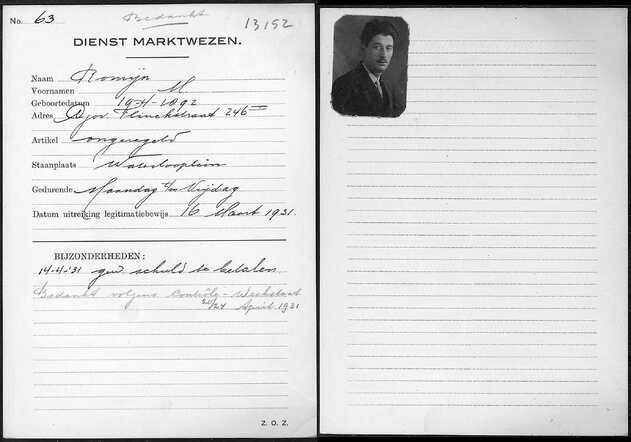 No. 63 Bedankt 13152
DIENST MARKTWEZEN.
Naam Romijn
Voornamen M.
Geboortedatum 19-4-1892
Adres Gov. Flinckstraat 246 III
Artikel ongeregeld
Staanplaats Waterlooplein
Gedurende Maandag t/m Vrijdag
Datum uitreiking legitimatiebewijs 16 Maart 1931.
BIJZONDERHEDEN:
14-4-'31 gew. schuld te betalen.
Bedankt volgens Contrôle-Weekstaat
20/24 April 1931
Z. O. Z.